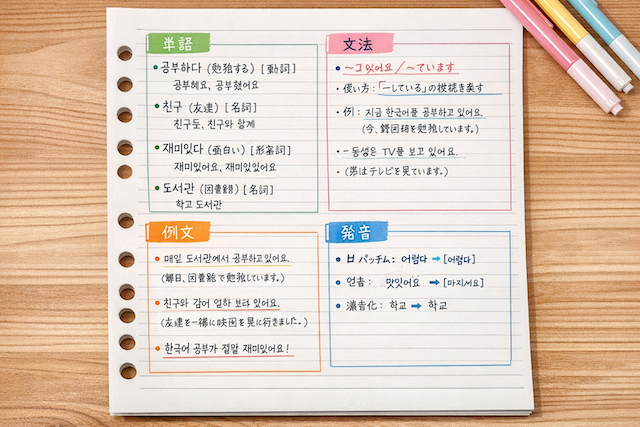 単語
• 공부하다 (勉強する) [動詞]
공부해요, 공부했어요
• 친구 (友達) [名詞]
친구들, 친구와 함께
• 재미있다 (面白い) [形容詞]
재미있어요, 재미있었어요
• 도서관 (図書館) [名詞]
학교 도서관
文法
• ~고 있어요/~ています
• 使い方:「~している」の
• 例: 지금 한국어를 공부하고 있어요.
(今、
• 동생은 TV를 보고 있어요.
• (弟はテレビを見ています。)
例文
• 매일 도서관에서 공부하고있어요.
(毎日、図書館で勉強しています。)
• 친구와 있어요.
(友達を一緒に を見に行きました。)
• 한국어 공부가 정말 재미있어요!
発音
• ㅂ パッチム: 어렵다 → [어렵다]
• 맛있어요 → [마지서요]
• 濃音化: 학교 → 학교